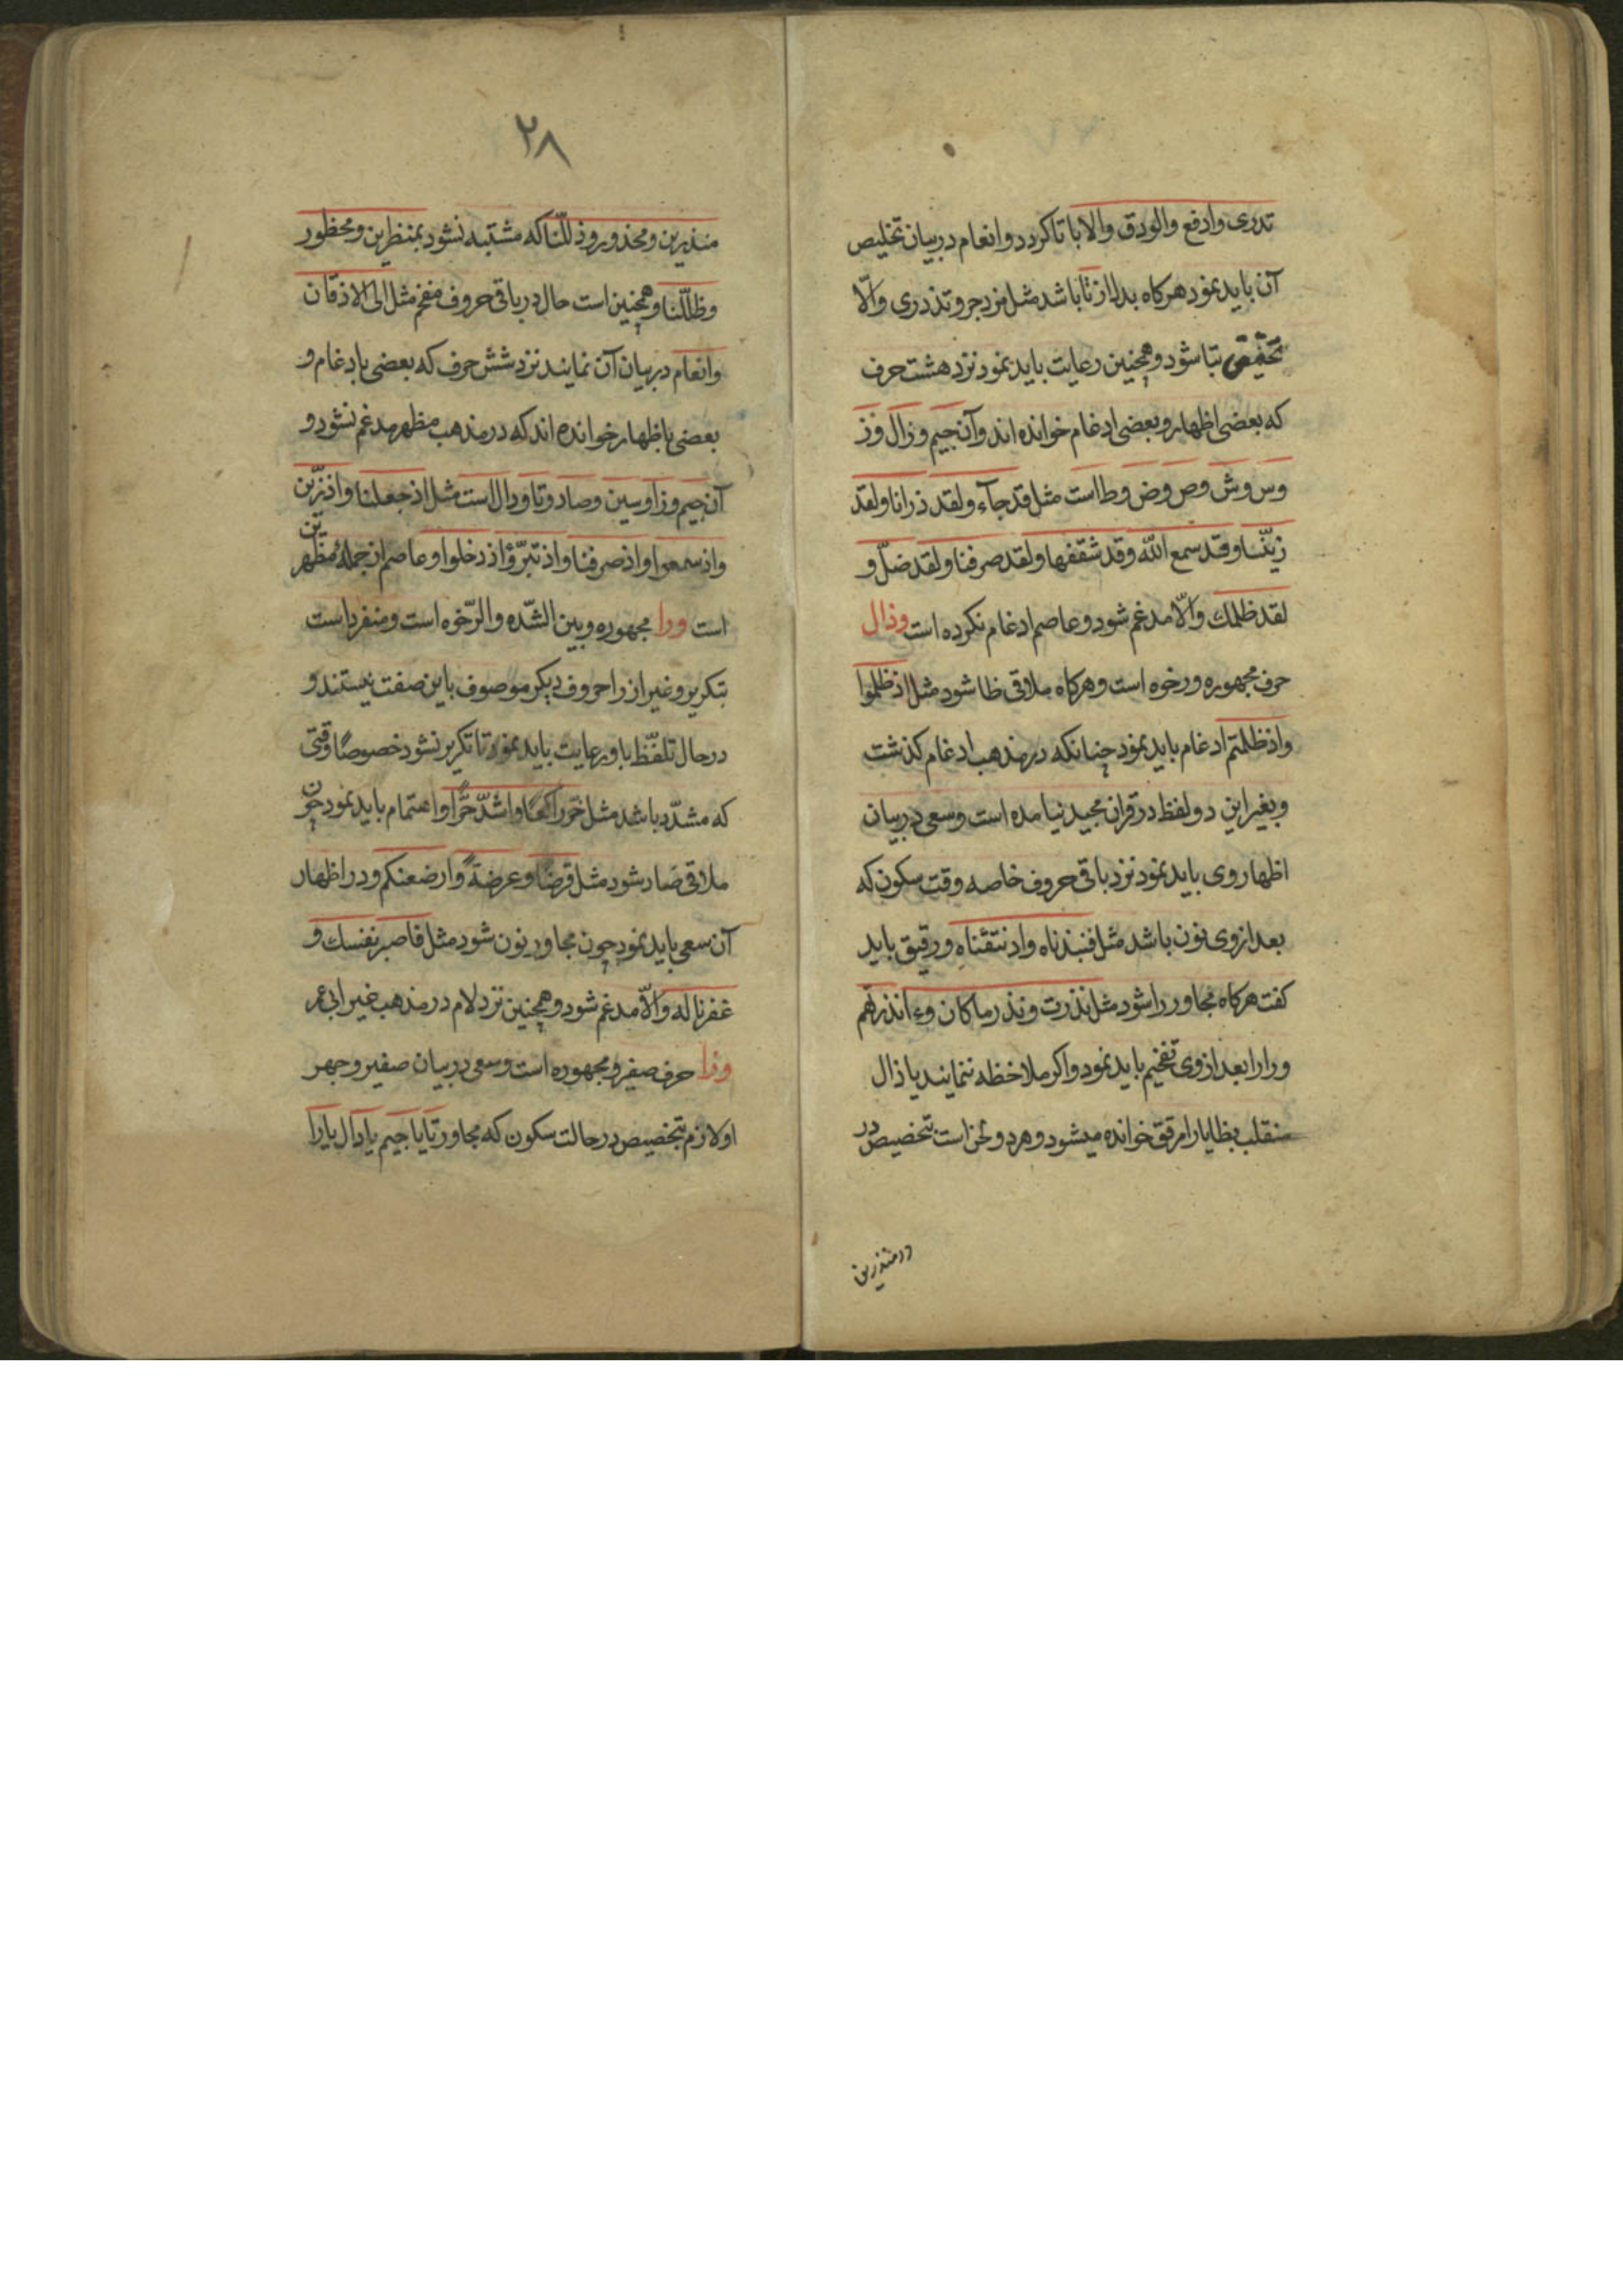 تدری وادفع والودق والا با تا کردد وانعام در بیان تخلیص
آن باید نمود هرکاه بدل از تا باشد مثل مزدجر و تذدری والّا
بتا شود و همچنین رعایت باید نمود نزد هشت حرف
که بعضی اظهار و بعضی ادغام خوانده اند و آن جیم و ذال و ز
و س و ش و ص و ض و ظا است مثل قد جآء و لقد ذرانا و لقد
زینّا و قد سمع الله و قد شغفها و لقد صرفنا و لقد ضلّ و
لقد ظلمك والّا مدغم شود و عاصم ادغام نکرده است وذال
حرف مجهوره و رخوه است و هرکاه ملاقی ظا شود مثل اذ ظلموا
واذ ظلمتم ادغام باید نمود چنانکه در مذهب ادغام کذشت
و بغیر این دو لفظ در قران مجید نیامده است و سعی در بیان
اظهار وی باید نمود نزد باقی حروف خاصه وقت سکون که
بعد از وی نون باشد مثل فنبذناه واذ نتقناه و رقیق باید
کفت هرکاه مجاور را شود مثل نذرت و نذر ما کان وءانذرتهم
و را را بعد از وی تفخیم باید نمود و اکر ملاحظه ننمایند یا ذال
منقلب بظا یا را مرقق خوانده میشود و هر دو لحن است بتخصیص در
در منذرین
۲۸
منذرین و محذورا و ذللّنا که مشتبه نشود بمنظرین و محظور
وظللّنا و همچنین است حال در باقی حروف مفخم مثل الی الاذقان
وانعام در بیان آن نمایند نزد شش حرف که بعضی بادغام و
بعضی باظهار خوانده اند که در مذهب مظهر مدغم نشود و
آن جیم و زا و سین و صاد و تا و دال است مثل اذ جعلنا واذ زیّن
واذ سمعوا واذ صرفنا واذ تبرّؤ اذ دخلوا و عاصم از جملهٔ مظهرین
است ورا مجهوره و بین الشّده والرّخوه است و منفرد است
بتکریر و غیر از را حروف دیکر موصوف باین صفت نیستند و
در حال تلفّظ باو رعایت باید نمود تا تکریر نشود خصوصًا وقتی
که مشدّد باشد مثل خرّ راکعًا و اشدّ حرًّا و اعتمام باید نمود چون
ملاقی ضاد شود مثل قرضًا و عرضةً وارضعنکم و در اظهار
آن سعی باید نمود چون مجاور نون شود مثل فاصبر نفسك و
غفرنا له والّا مدغم شود و همچنین نزد لام در مذهب غیر ابی عمر
وزا حرف صفیر و مجهوره است و سعی در بیان صفیر و جهر
او لازم بتخصیص در حالت سکون که مجاور تا یا جیم یا دال یا را